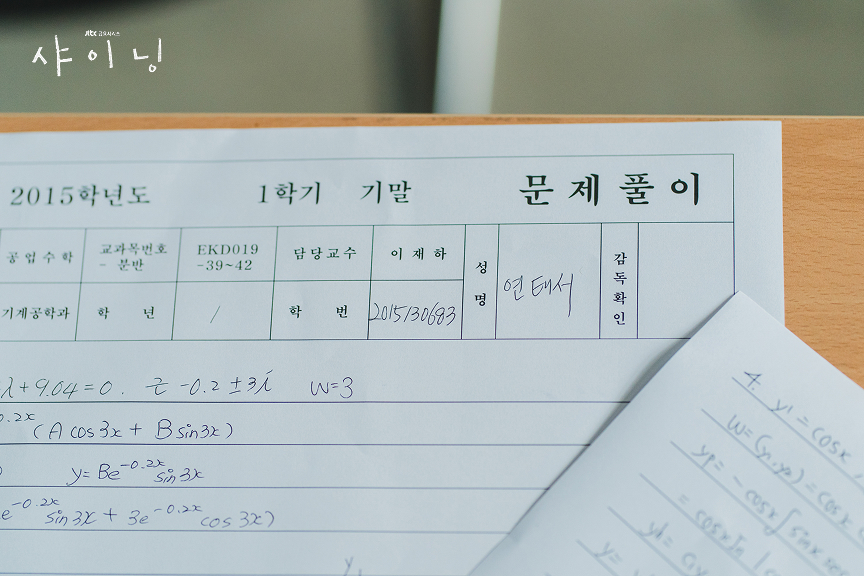 jtbc 금요시리즈
샤이닝
2015학년도 1학기 기말 문제풀이
공업수학 교과목번호 - 분반 EKD019 -39~42 담당교수 이재하 성명 연태서 감독확인
기계공학과 학 년 1 학 번 2015130683
λ+9.04=0. -0.2±3i w=3
0.2x (A cos3x + B sin3x)
y=Be^-0.2x sin3x
e^-0.2x sin3x + 3e^-0.2x cos3x)
4. y' = cosx
w=(y₁,y₂)=cosx
yp= -cosx∫sinx
= cosx ln
y=